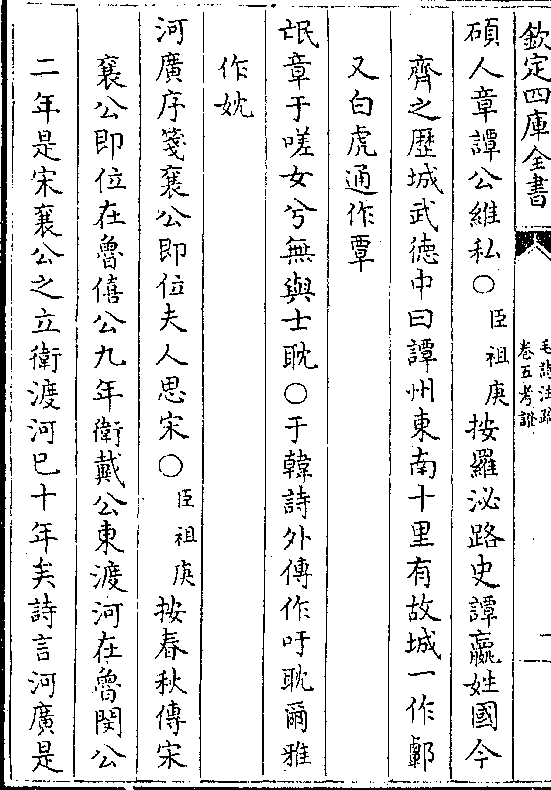 欽定四庫全書
毛詩注疏
卷五考證
一
碩人章譚公維私○臣祖庚按羅泌路史譚嬴姓國今
齊之歴城武徳中曰譚州東南十里有故城一作鄿
又白虎通作覃
氓章于嗟女兮無與士耽○于韓詩外傳作吁耽爾雅
作妉
河廣序箋襄公即位夫人思宋○臣祖庚按春秋傳宋
襄公即位在魯僖公九年衛戴公東渡河在魯閔公
二年是宋襄公之立衛渡河已十年矣詩言河廣是